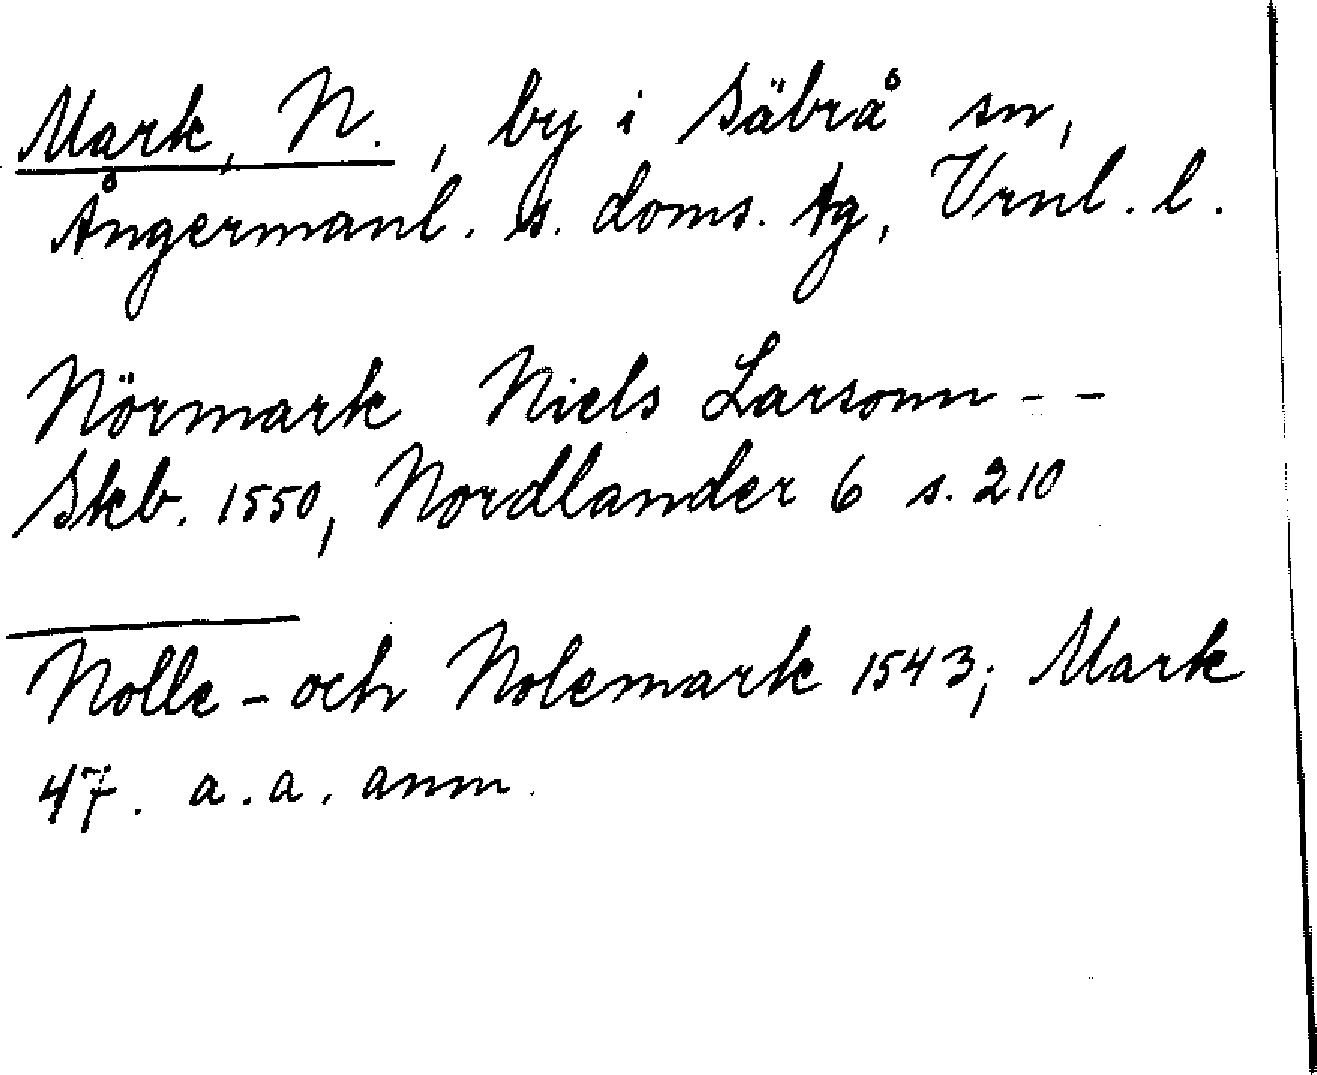 Mark, N., by i Säbrå sn,
Ångermanl. s. doms. tg, Vrnl. l.
Nörmark Niels Larsonn - -
Skb. 1550, Nordlander 6 s. 210
Nolle- och Nolemark 1543; Mark
47. a. a. anm.